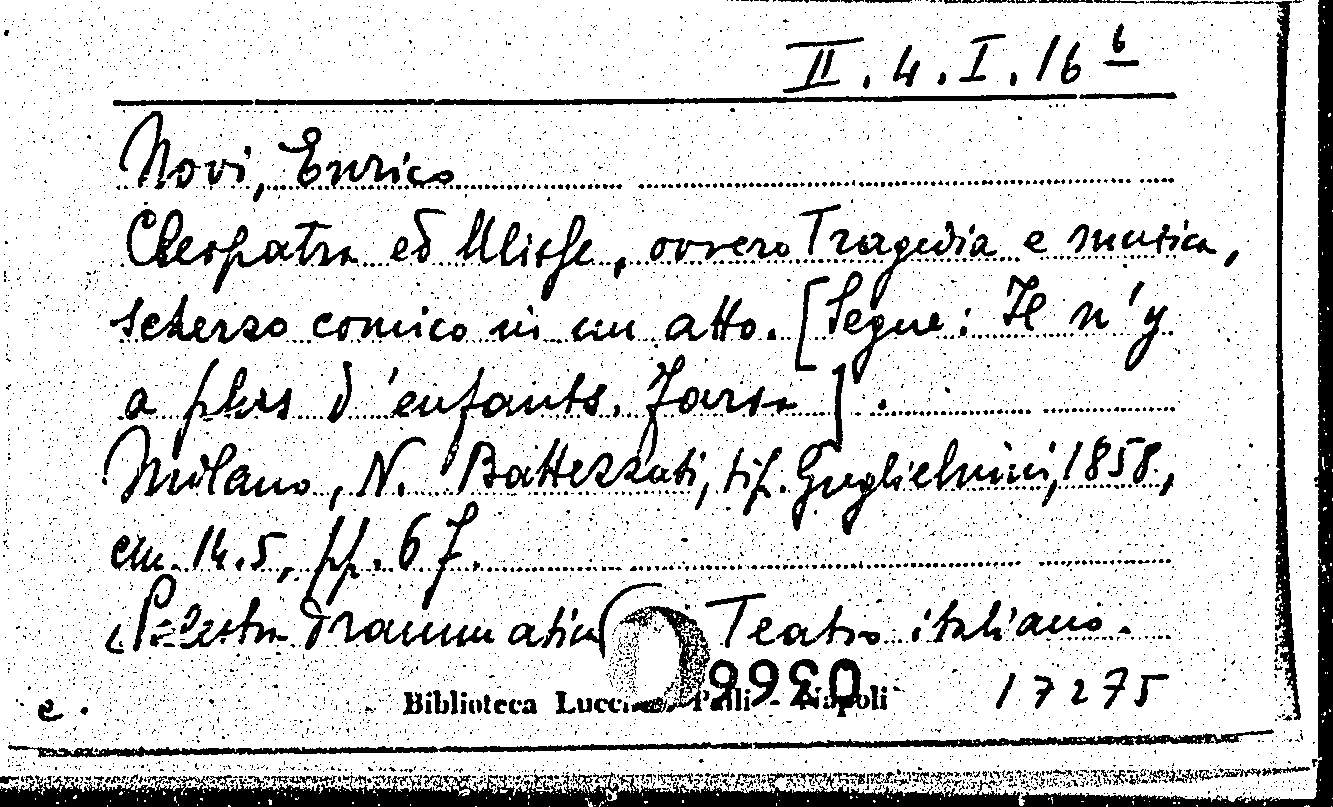 II.4.I.16 6
Novi, Enrico
Cleopatra ed Ulisse, ovvero Tragedia e musica,
scherzo comico in un atto. [Segue: Il n'y
a plus d'enfants. Farsa].
Milano, N. Battezzati, tip. Guglielmini, 1858,
cm. 14.5, pp. 67.
Palestra drammatica Teatro italiano.
e. Biblioteca Palli - Napoli 17275